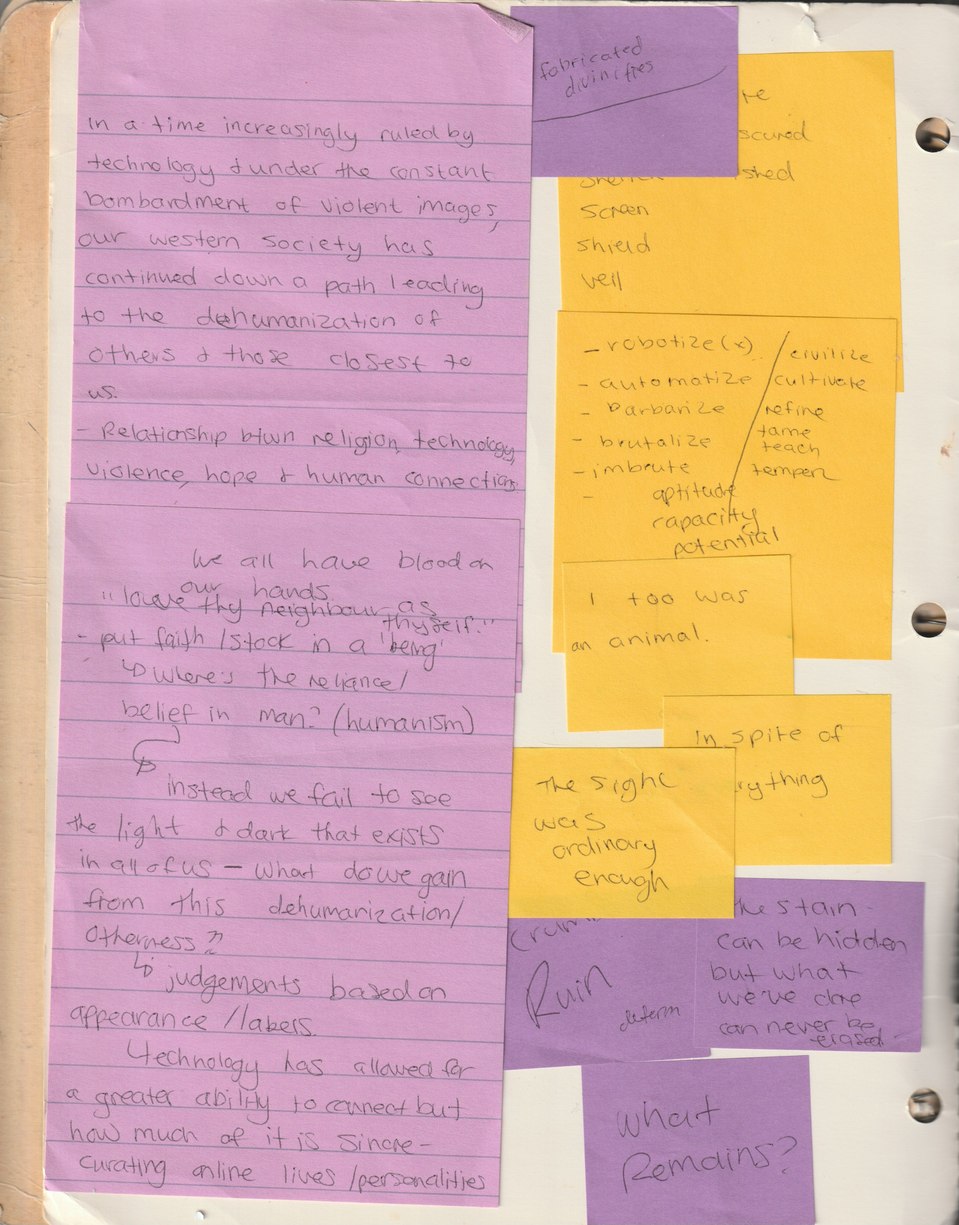 in a time increasingly ruled by
technology & under the constant
bombardment of violent images,
our western society has
continued down a path leading
to the dehumanization of
others & those closest to
us.
- Relationship btwn religion, technology,
violence, hope & human connections
we all have blood on
our hands.
"love thy neighbour as
thyself."
- put faith / stock in a 'being'
↳ where's the reliance /
belief in man? (humanism)
instead we fail to see
the light & dark that exists
in all of us - what do we gain
from this dehumanization /
otherness??
↳ judgements based on
appearance / labels
↳ technology has allowed for
a greater ability to connect but
how much of it is sincre -
curating online lives / personalities
fabricated
divinities
re
scured
shed
screen
shield
veil
- robotize (x)
- automatize
- barbarize
- brutalize
- imbrute
-
civilize
cultivate
refine
tame
teach
temper
aptitude
capacity
potential
I too was
an animal.
In spite of
rything
The sight
was
ordinary
enough
Ruin
determ
the stain
can be hidden
but what
we've done
can never be
erased
what
Remains?